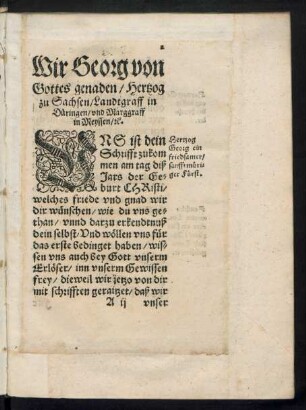 Wir Georg von
Gottes genaden / Hertzog
zu Sachsen / Landtgraff in
Düringen / vnd Marggraff
in Meyssen / ꝛc.
VNS ist dein
Schrifft zukom
men am tag diß
Jars der Ge-
burt CHRisti /
welches friede vnd gnad wir
dir wünschen / wie du vns ge-
than / vnnd darzu erkendtnuß
dein selbst / Vnd wöllen vns für
das erste bedinget haben / wis-
sen vns auch bey Gott vnserm
Erlöser / inn vnserm Gewissen
frey / dieweil wir jetzo von dir
mit schrifften geraitzet / daß wir
A ij vnser
Hertzog
Georg ein
friedsamer /
sanfftmüti
ger Fürst.